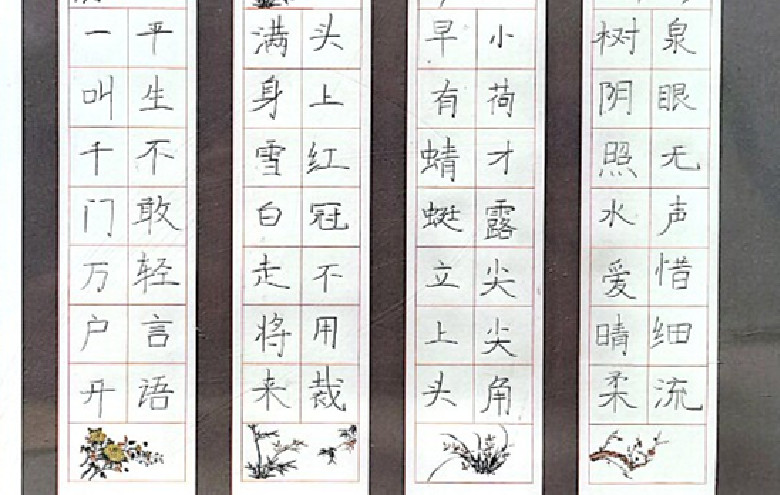 泉眼无声惜细流
树阴照水爱晴柔
小荷才露尖尖角
早有蜻蜓立上头
头上红冠不用裁
满身雪白走将来
平生不敢轻言语
一叫千门万户开